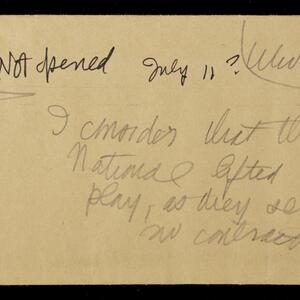 Not opened July 11?
I consider that th
National lifted
play, as they se
no contrac